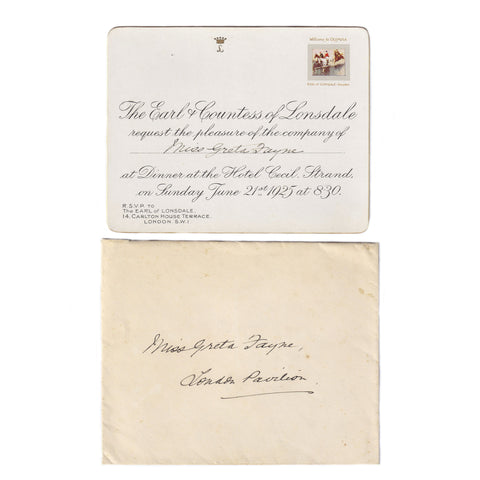 L
Welcome to Olympia
The Earl & Countess of Lonsdale
request the pleasure of the company of
Miss Greta Fayne
at Dinner at the Hotel Cecil, Strand,
on Sunday June 21st 1925 at 8.30.
R.S.V.P. TO
THE EARL OF LONSDALE,
14, CARLTON HOUSE TERRACE,
LONDON S.W.1.
Miss Greta Fayne,
London Pavilion.